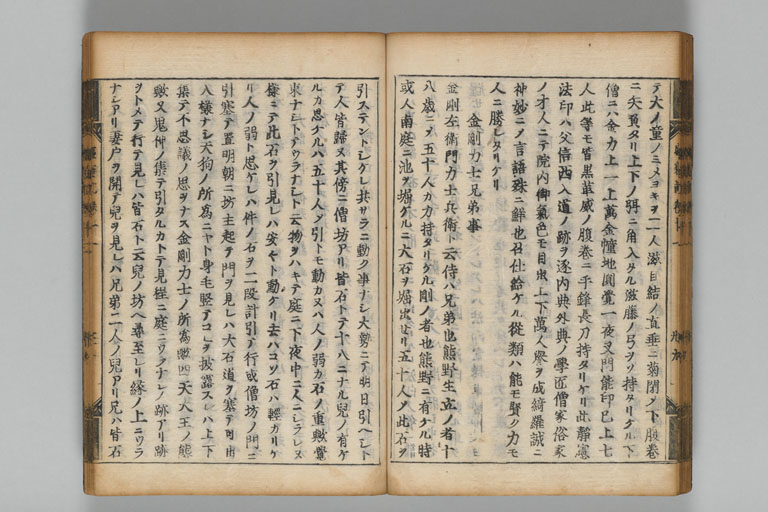 テ大ノ童ノミメヨキヲ二人滋目結ノ直垂ニ菊閉ノ下腹巻
ニ矢負タリ上下ノ弭ニ角入タル滋藤ノ弓ヲソ持タリケル下
僧ニハ金力上一上万金幢地圓覚一夜叉門能印已上七
人此等モ皆黒革威ノ腹巻ニ手鋒長刀持タリケリ此静憲
法印ハ父信西入道ノ跡ヲ逐内典外典ノ學匠僧家俗家
ノ才人ニテ院内御氣色モ目出上下萬人譽ヲ成綺羅誠ニ
神妙ニノ言語殊ニ鮮也召仕給ケル從類ハ能モ賢ク力モ
人ニ勝レタリケリ
金剛力士兄弟事
金剛左衛門力士兵衛ト云侍ハ兄弟也熊野生立ノ者十
八歳ニテ五十人カ力持タリケル剛ノ者也熊野ニ有ケル時
或人南庭ニ池ヲ堀ケルニ大石ヲ堀出セリ五十人ノ此石ヲ
引ステントシケレ共サラニ動ク事ナシ大勢ニテ明日引ヘシト
テ人皆歸ヌ其傍ニ僧坊アリ皆石トテ十八ニナル兒ノ有ケ
ルカ思ケルハ五十人ノ引トモ動カヌハ人ノ弱カ石ノ重歟驚
来ナシトアウラナシト云物ヲハキテ庭ニ下夜中ニ人ニシラレヌ
様ニテ此石ヲ引見レハ安々ト動ケリ去ハコソ石ハ輕カリケ
リ人ノ弱ト思ケレハ件ノ石ヲ二段計引テ行或僧坊ノ門ニ
引塞テ置明朝ニ坊主起テ門ヲ見レハ大石道ヲ塞テ可出
入様ナシ天狗ノ所為ニヤト身毛竪テコレヲ披露スレハ上下
集テ不思議ノ思ヲナス金剛力士ノ所為歟四天大王ノ態
歟又鬼神ノ集テ引タルカトテ見程ニ庭ニウラナシノ跡アリ跡
ヲトメテ行テ見レハ皆石ト云兒ノ坊ヘ尋至レリ縁ノ上ニウラ
ナシアリ妻戸ヲ開テ兒ヲ見レハ兄弟二人ノ兒アリ兄ハ皆石